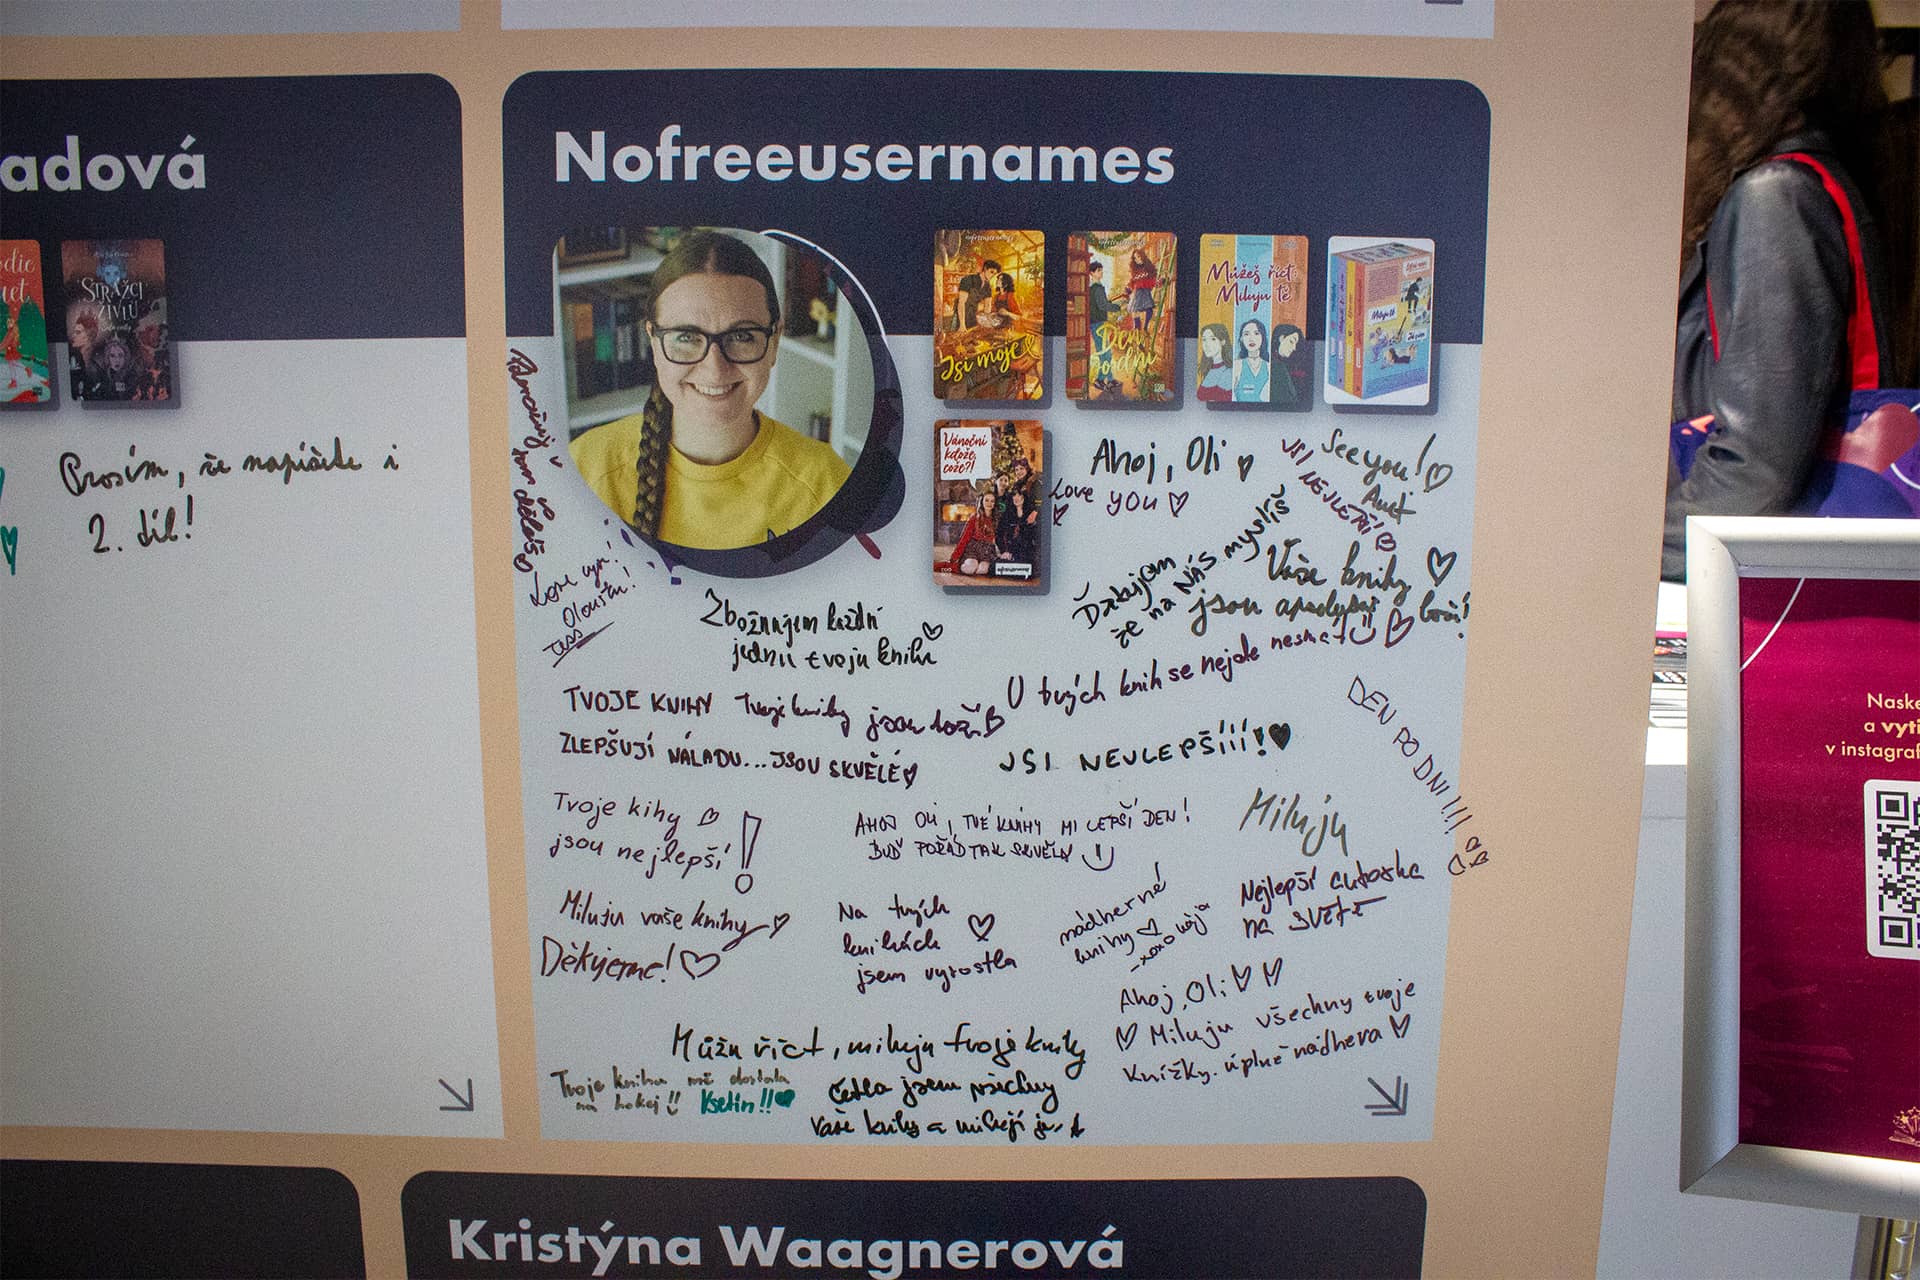 adová
STRÁŽCI
ŽIVLŮ
Prosím, že napíšete i
2. díl!
Nofreeusernames
Jsi moje
Den
Můžeš říct:
Miluju tě
Vánoční
kdože,
cože?!
Ahoj, Oli
Love YOU
See you!
JSI NEJLEPŠÍ!
Love vyr!
Děkujem
že na NÁS myslíš
Vaše knihy
jsou
boží!
Zbožňujem každní
jednu tvoju knihu
U tvých knih se nejde nesmát
TVOJE KNIHY
ZLEPŠUJÍ NÁLADU... JSOU SKVĚLÉ
Tvoje knihy jsou boží
JSI NEJLEPŠÍÍÍ!
DEN PO DNI!!!!
Tvoje kihy
jsou nejlepší!
AHOJ OLI, TVÉ KNIHY MI LEPŠÍ DEN!
BUĎ POŘÁD TAK SKVĚLÁ
Miluju
Nejlepší autorka
na SVĚTĚ
Miluju vaše knihy
Děkujeme!
Na tvých
knihách
jsem vyrostla
nádherné
knihy
-xoxo
Ahoj, Oli
Miluju všechny tvoje
knížky. úplně nádhera
Můžu říct, miluju tvoje knihy
Tvoje kniha mě dostala
na hokej!!
Vsetín!!
četla jsem všechny
vaše knihy a miluji je
Kristýna Waagnerová
Naske
a vyti
v instagraf